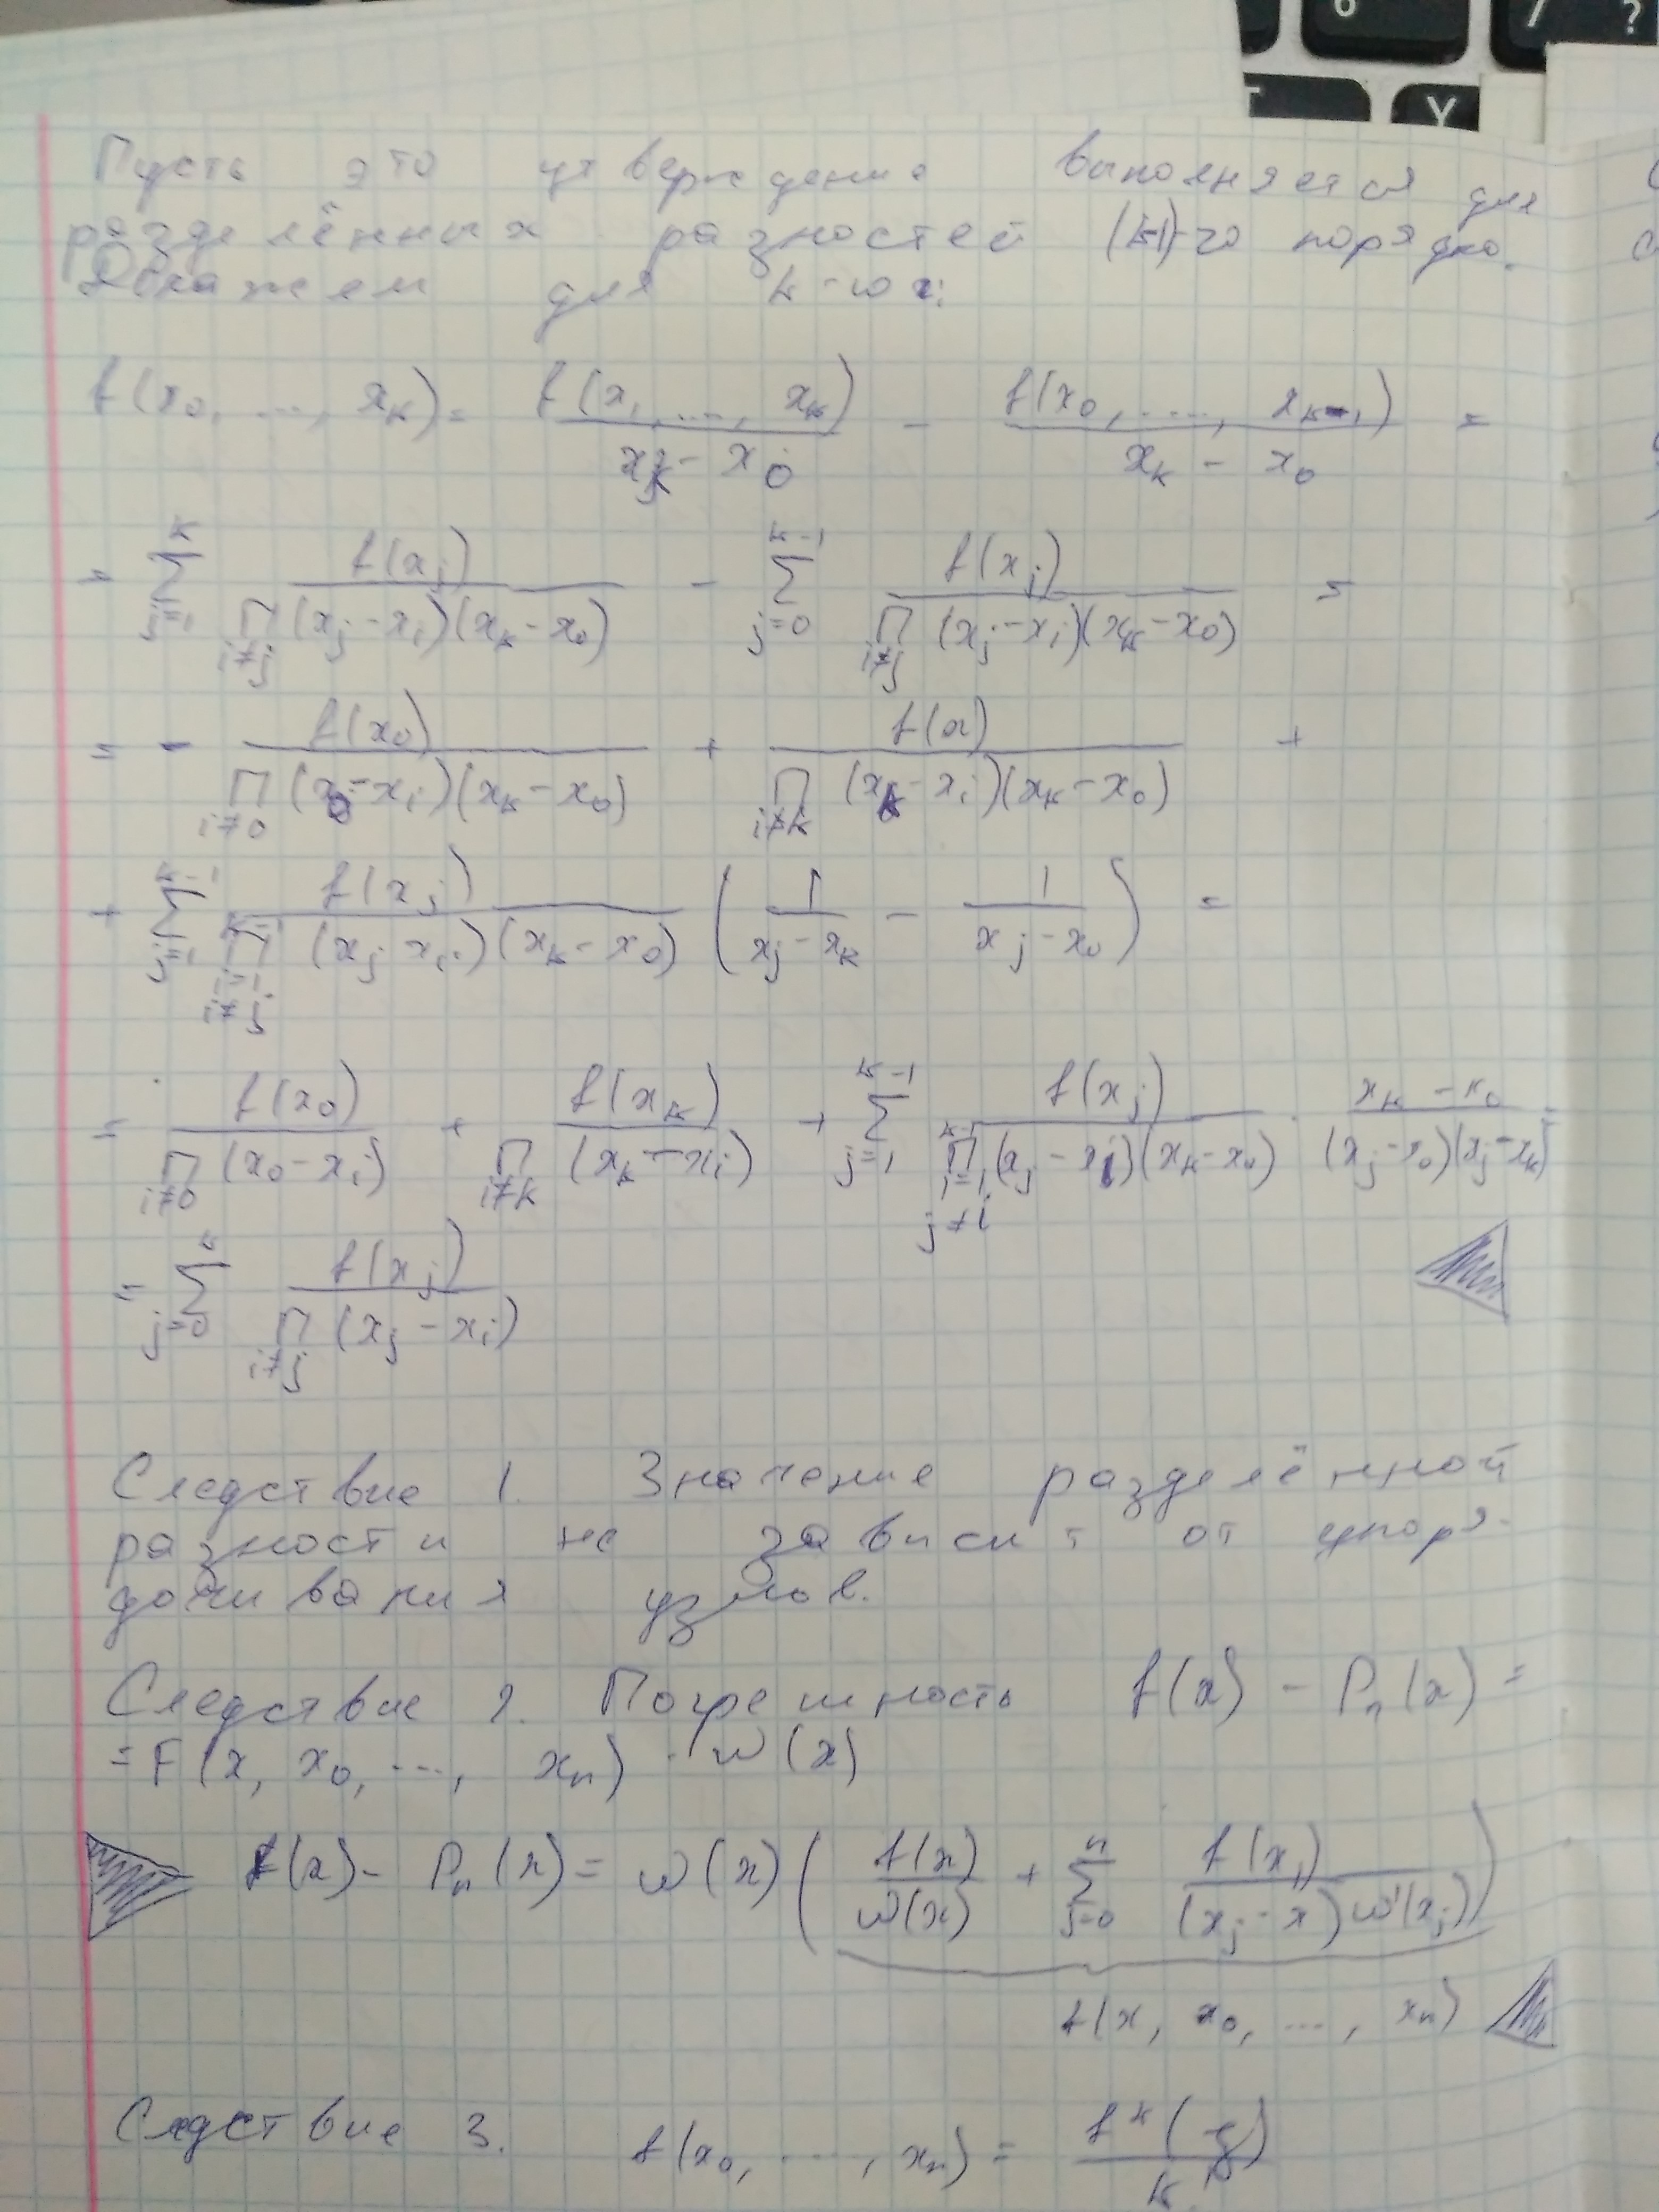 Пусть это утверждение выполняется для
разделённых разностей (k-1)-го порядка.
Докажем для k-ого:
f(x₀, ..., xₖ) = f(x₁, ..., xₖ) / (xₖ - x₀) - f(x₀, ..., xₖ₋₁) / (xₖ - x₀) =
= Σ_{j=1}^{k} f(xⱼ) / (Π_{i≠j} (xⱼ - xᵢ)(xₖ - x₀)) - Σ_{j=0}^{k-1} f(xⱼ) / (Π_{i≠j} (xⱼ - xᵢ)(xₖ - x₀)) =
= - f(x₀) / (Π_{i≠0} (x₀ - xᵢ)(xₖ - x₀)) + f(x) / (Π_{i≠k} (xₖ - xᵢ)(xₖ - x₀)) +
+ Σ_{j=1}^{k-1} f(xⱼ) / (Π_{i=1, i≠j}^{k-1} (xⱼ - xᵢ)(xₖ - x₀)) (1 / (xⱼ - xₖ) - 1 / (xⱼ - x₀)) =
= f(x₀) / (Π_{i≠0} (x₀ - xᵢ)) + f(xₖ) / (Π_{i≠k} (xₖ - xᵢ)) + Σ_{j=1}^{k-1} f(xⱼ) / (Π_{i=1, j≠i}^{k-1} (xⱼ - xᵢ)(xₖ - x₀)) · (xₖ - x₀) / ((xⱼ - x₀)(xⱼ - xₖ)) =
= Σ_{j=0}^{k} f(xⱼ) / (Π_{i≠j} (xⱼ - xᵢ))
Следствие 1. Значение разделённой
разности не зависит от упоря-
дочивания узлов.
Следствие 2. Погрешность f(x) - Pₙ(x) =
= F(x, x₀, ..., xₙ) · ω(x)
f(x) - Pₙ(x) = ω(x) (f(x) / ω(x) + Σ_{j=0}^{n} f(xⱼ) / ((xⱼ - x) ω'(xⱼ)))
f(x, x₀, ..., xₙ)
Следствие 3. f(x₀, ..., xₙ) = fᵏ(ξ) / k!